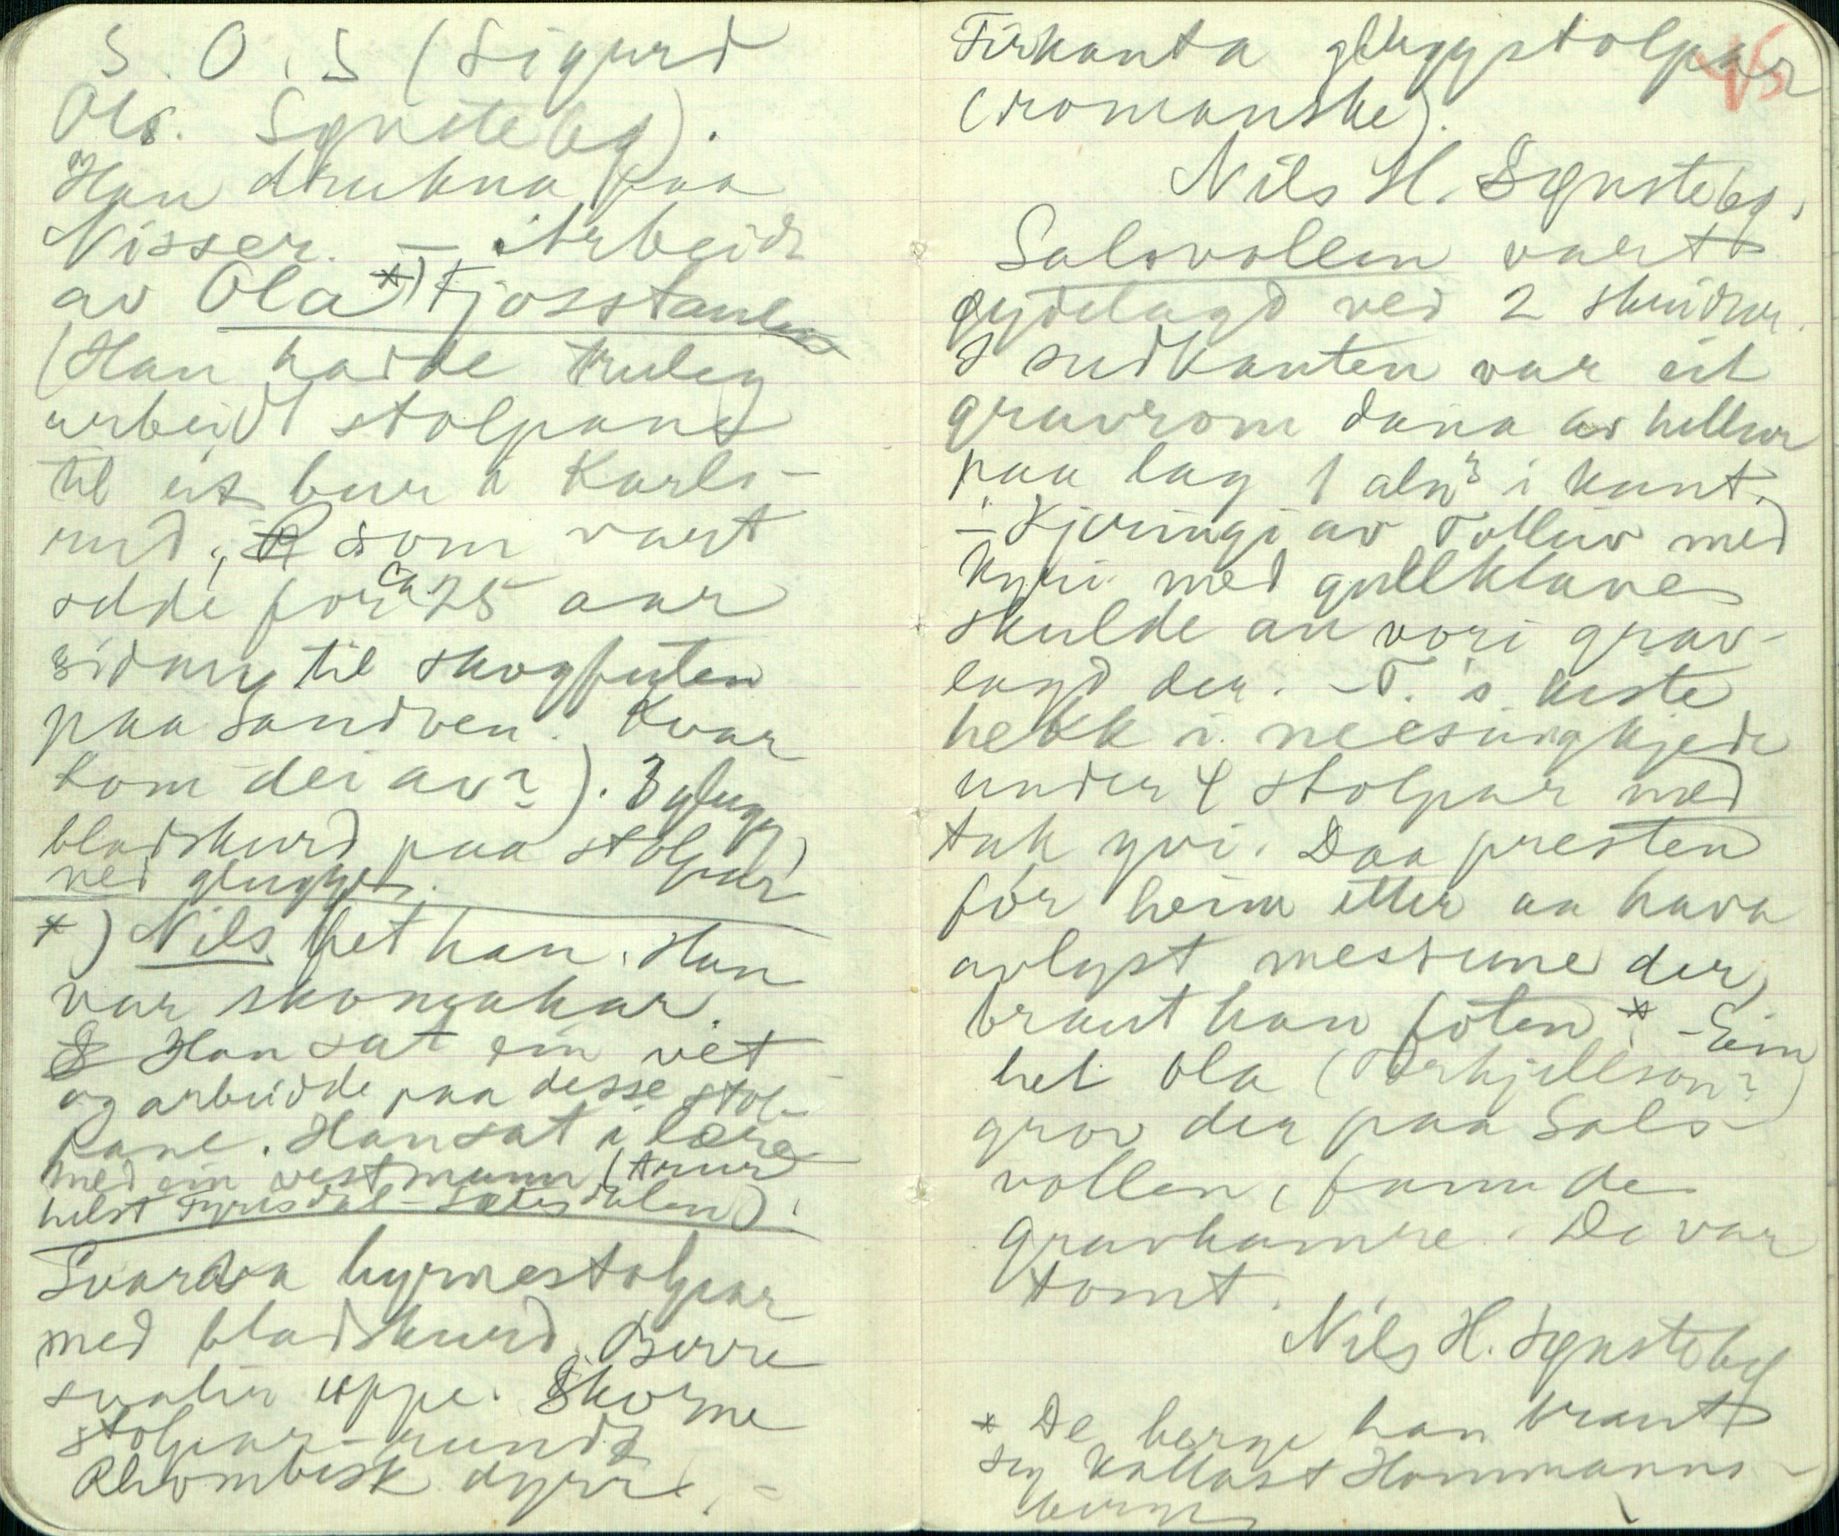 S. O. S (Sigurd
Ols. Synsteby).
Han drukna paa
Nisser. — Arbeidt
av Ola *) Fjosstaulen
(Han hadde truleg
arbeidt stolpane
til eit bur i Karls-
rud, som vart
selde for ca 25 aar
sidan til skogfuten
paa Sandven. Kvar
kom dei av?). 3 glugg
bladskurd paa stolpar
ved gluggen.
*) Nils het han. Han
var skomakar.
Han sat ein vet
og arbeidde paa desse stol-
pane. Han sat i lære
med ein vestmann (trur
helst Fyrisdal - Setisdalen).
Svarva hyrnestolpar
med bladskurd. Berre
svalir uppe. Skorne
stolpar - runde
Rhombisk dyrri. -
45
Firkanta gluggstolpar
(romanske).
Nils H. Synsteby.
Salsvollen vart
øydelagd ved 2 skridur.
I sudkanten var eit
gravrom dana av hellur
paa lag 1 aln³ i kant.
- Kjeringi av Tolleiv med
kyri med gullklave
skulde au vori grav-
lagd der. - T.'s kiste
hekk i messingkjede
under 4 stolpar med
tak yvi. Daa presten
fór heim etter aa hava
avlyst messune der,
braut han foten *. - Ein
het Ola (Torkjellson?)
grov der paa Sals-
vollen, fann de
gravkamre. De var
tomt.
Nils H. Synsteby
* De berge han braut
seg kallast Hommanns-
berge